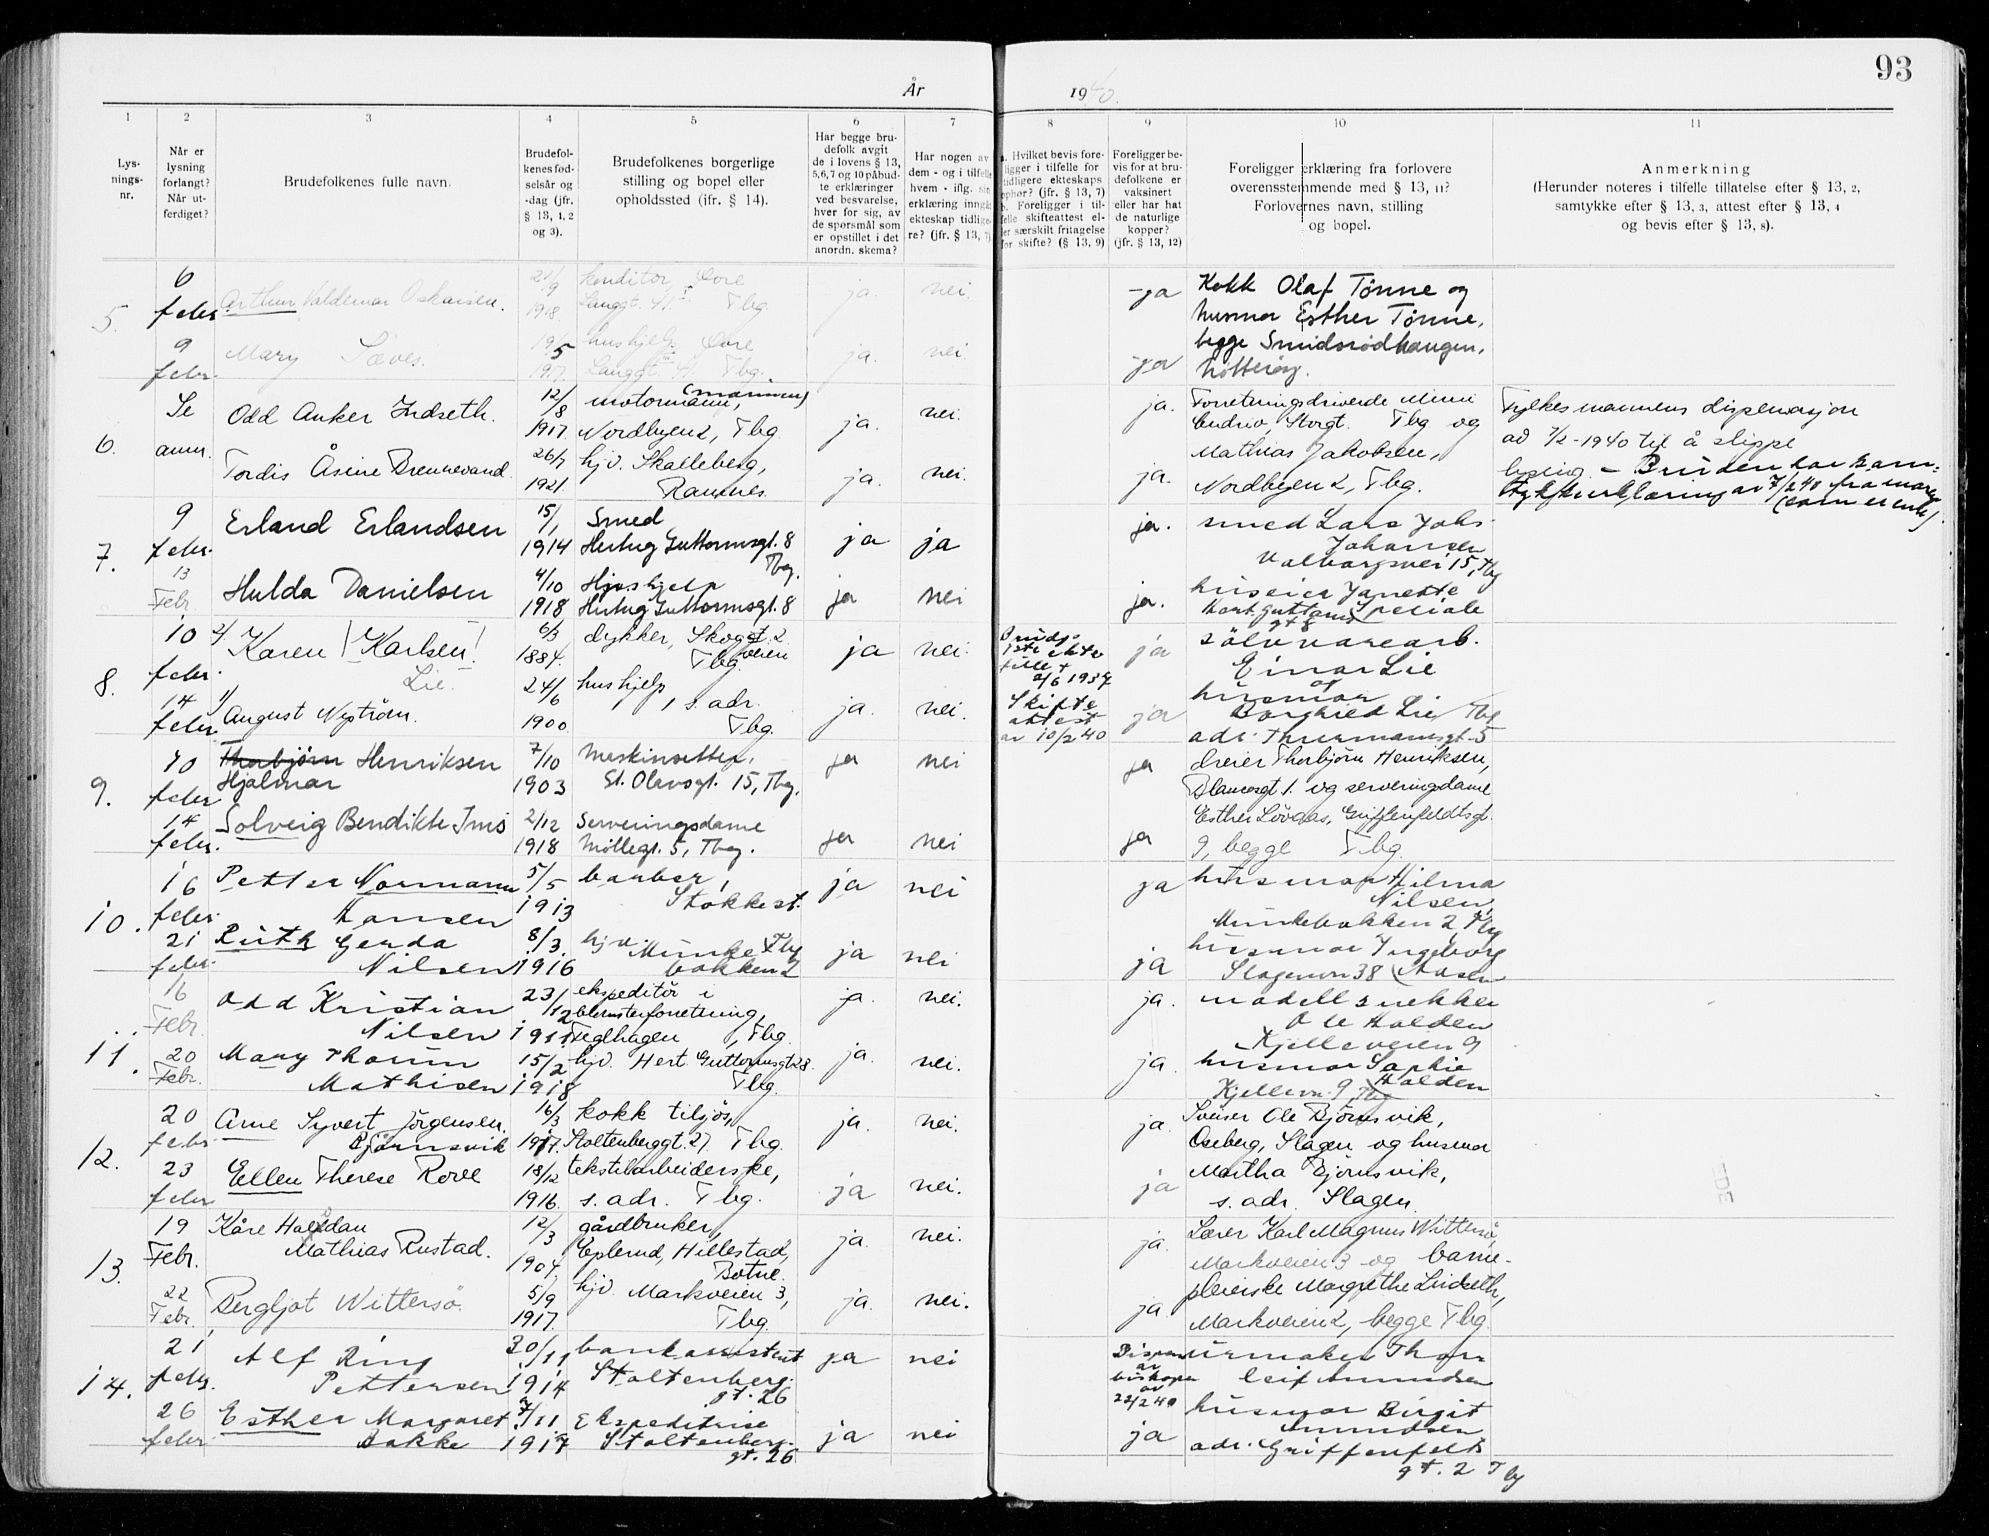 93
År 1940.
1 2 3 4 5 6 7 8 9 10 11
Lys-
nings-
nr.
Når er
lysning
forlangt?
Når ut-
ferdiget?
Brudefolkenes fulle navn.
Brudefol-
kenes fød-
selsår og
-dag (jfr.
§ 13, 1, 2
og 3).
Brudefolkenes borgerlige
stilling og bopel eller
opholdssted (jfr. § 14).
Har begge bru-
defolk avgit
de i lovens § 13,
5,6,7 og 10 påbud-
te erklæringer
ved besvarelse,
hver for sig, av
de spørsmål som
er opstillet i det
anordn. skema?
Har nogen av
dem - og i tilfelle
hvem - iflg. sin
erklæring inngått
ekteskap tidlige-
re? (jfr. § 13, 7)
a. Hvilket bevis fore-
ligger i tilfelle for
tidligere ekteskaps
ophør? (jfr. § 13, 7)
b. Foreligger i til-
felle skifteattest el-
ler særskilt fritagelse
for skifte? (§ 13, 9)
Foreligger be-
vis for at bru-
defolkene er
vaksinert
eller har hat
de naturlige
kopper?
(jfr. § 13, 12)
Foreligger erklæring fra forlovere
overensstemmende med § 13, 11?
Forlovernes navn, stilling
og bopel.
Anmerkning
(Herunder noteres i tilfelle tillatelse efter § 13, 2,
samtykke efter § 13, 3, attest efter § 13, 4
og bevis efter § 13, 8).
5.
6
febr
Arthur Valdemar Oskarsen.
21/9
1918.
konditor, Øvre
Langgt. 41. Tbg.
ja. nei. ja
Kokk Olaf Tønne og
husmor Esther Tønne,
begge Smidsrødhaugen,
Nøtterøy.
9
febr.
Mary Sæves.
19/5
1917.
hushjelp, Øvre
Langgt. 41. Tbg.
ja. nei. ja
6.
Se
anm.
Odd Anker Indseth.
12/8
1917.
motormann, (marinen)
Nordbyen 2, Tbg
ja. nei. ja.
Forretningsdrivende
Storgt. Tbg og
Mathias Jakobsen,
Nordbyen 2, Tbg.
Fylkesmannens dispensasjon
av 7/2-1940 til å slippe
lysning. - Bruden har sam-
tykkeerklæring av 7/2 40 fra moren
(som er enke).
Tordis Åsine Brennevand.
26/7
1921.
hjv. Skalleberg,
Ramnes.
ja. nei. ja.
7.
9
febr.
Erland Erlandsen
15/1
1914
Smed
Hertug Guttormsgt. 8
Tbg.
ja ja ja.
smed Lars Johs.
Johansen
Valborgsvei 15, Tbg
13
Febr.
Hulda Danielsen
4/10
1918
Hjushjelp
Hertug Guttormsgt. 8
ja nei ja.
Janette
gt 8
8.
10
febr.
2/ Karen (Karlsen)
Lie.
6/3
1884.
dykker, Skogt. 2
veien
Tbg.
ja nei. ja
sølvvarearb.
Einar Lie
og
husmor
Borghild Lie, Tbg
adr. Thurmannsgt. 5
2/6 1937
Skifte
attest
av 10/2 40
14
febr
1/ August Nyström.
24/6
1900
hushjelp
, s. adr.
Tbg.
ja. nei. ja
9.
10
febr
Thorbjørn Henriksen
Hjalmar
7/10
1903
Maskinsetter,
St. Olavsgt. 15, Tbg.
ja nei ja
dreier Thorbjørn Henriksen,
1. og serveringsdame
Esther Løvaas, Griffenfeldtsgt.
9, begge Tbg.
14
febr.
Solveig Bendikte Inis
2/12
1918
Serveringsdame
Møllegt. 5, Tbg.
ja nei ja
10.
16
febr.
Petter Normann
Hansen
5/5
1913
barber,
Stokke st.
ja nei ja
husmor Hilma
Nilsen,
Munkebakken 2, Tbg
husmor Ingeborg
Slagenvn 38
21
febr.
Ruth Gerda
Nilsen
8/3.
1916
hjv. Munke Tbg
bakken 2
ja nei ja
11.
16
Febr.
Odd Kristian
Nilsen
23/12
1911
ekspeditør i
blomsterforretning,
Teglhagen, Tbg.
ja. nei. ja.
modellsnekker
Ole Holden
Kjelleveien 9
husmor Sophie
Holden
Kjellevn. 9, Tbg
20
Febr.
Mary Thorun
Mathisen
15/2
1918
hjv. Hert. Guttormsgt 28.
Tbg.
ja. nei. ja.
12.
20
febr
Arne Syvert Jørgensen
Bjørnsvik
16/3
1917.
kokk tilsjøs,
Stoltenberggt. 27 Tbg.
ja. nei. ja.
Sveiser Ole Bjørnsvik,
Oseberg, Slagen og husmor
Martha Bjørnsvik,
s. adr. Slagen.
23
febr
Ellen Therese Rove
18/12
1916.
tekstilarbeiderske,
s. adr. Tbg.
ja nei. ja
13.
19
Febr.
Kåre Halvdan
Mathias Rustad.
12/3
1904
gårdbruker,
Eplerud, Hillestad,
Botne.
ja. nei. ja.
Lærer Karl Magnus Wittersø,
Markveien 3 og barne-
pleierske Margrethe Lindseth,
Markveien 2, begge Tbg.
22
Febr.
Bergljot Wittersø.
5/9
1917.
hjv. Markveien 3,
Tbg.
ja. nei. ja.
14.
21
febr.
Alf Ring
Pettersen
30/11
1914
bankassistent
Stoltenberg.
gt. 26
ja nei
Dispens
av
biskopen
av
22/2 40
urmaker Thor
Leif Amundsen
husmor Birgit
Amundsen
adr. Griffenfelts
gt. 2 Tbg
26
febr
Esther Margaret
Bakke
7/11
1917
Ekspeditrise
Stoltenberg-
gt. 26
ja nei ja